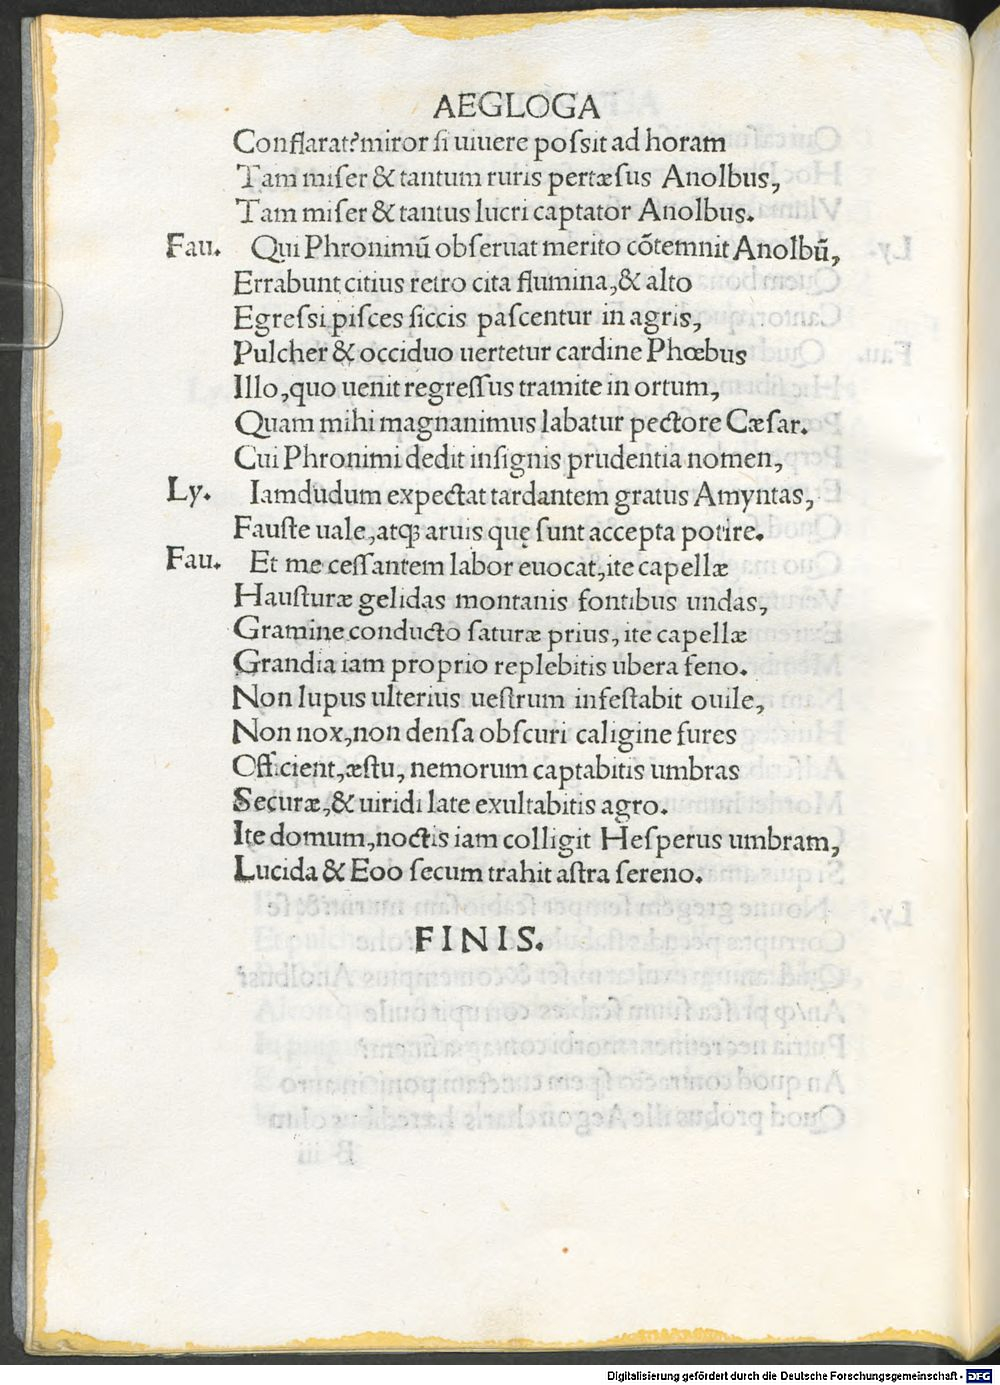 AEGLOGA
Conflarat?miror ſi uiuere poſsit ad horam
Tam miſer & tantum ruris pertæſus Anolbus,
Tam miſer & tantus lucri captator Anolbus.
Fau. Qui Phronimũ obſeruat merito cõtemnit Anolbũ,
Errabunt citius retro cita flumina,& alto
Egreſsi piſces ſiccis paſcentur in agris,
Pulcher & occiduo uertetur cardine Phœbus
Illo,quo uenit regreſſus tramite in ortum,
Quam mihi magnanimus labatur pectore Cæſar.
Cui Phronimi dedit inſignis prudentia nomen,
Ly. Iamdudum expectat tardantem gratus Amyntas,
Fauſte uale,atq; aruis quę ſunt accepta potire.
Fau. Et me ceſſantem labor euocat,ite capellæ
Hauſturæ gelidas montanis fontibus undas,
Gramine conducto ſaturæ prius, ite capellæ
Grandia iam proprio replebitis ubera feno.
Non lupus ulterius ueſtrum infeſtabit ouile,
Non nox,non denſa obſcuri caligine fures
Officient,æſtu, nemorum captabitis umbras
Securæ,& uiridi late exultabitis agro.
Ite domum,noctis iam colligit Heſperus umbram,
Lucida & Eoo ſecum trahit aſtra ſereno.
FINIS.
Digitalisierung gefördert durch die Deutsche Forschungsgemeinschaft - DFG